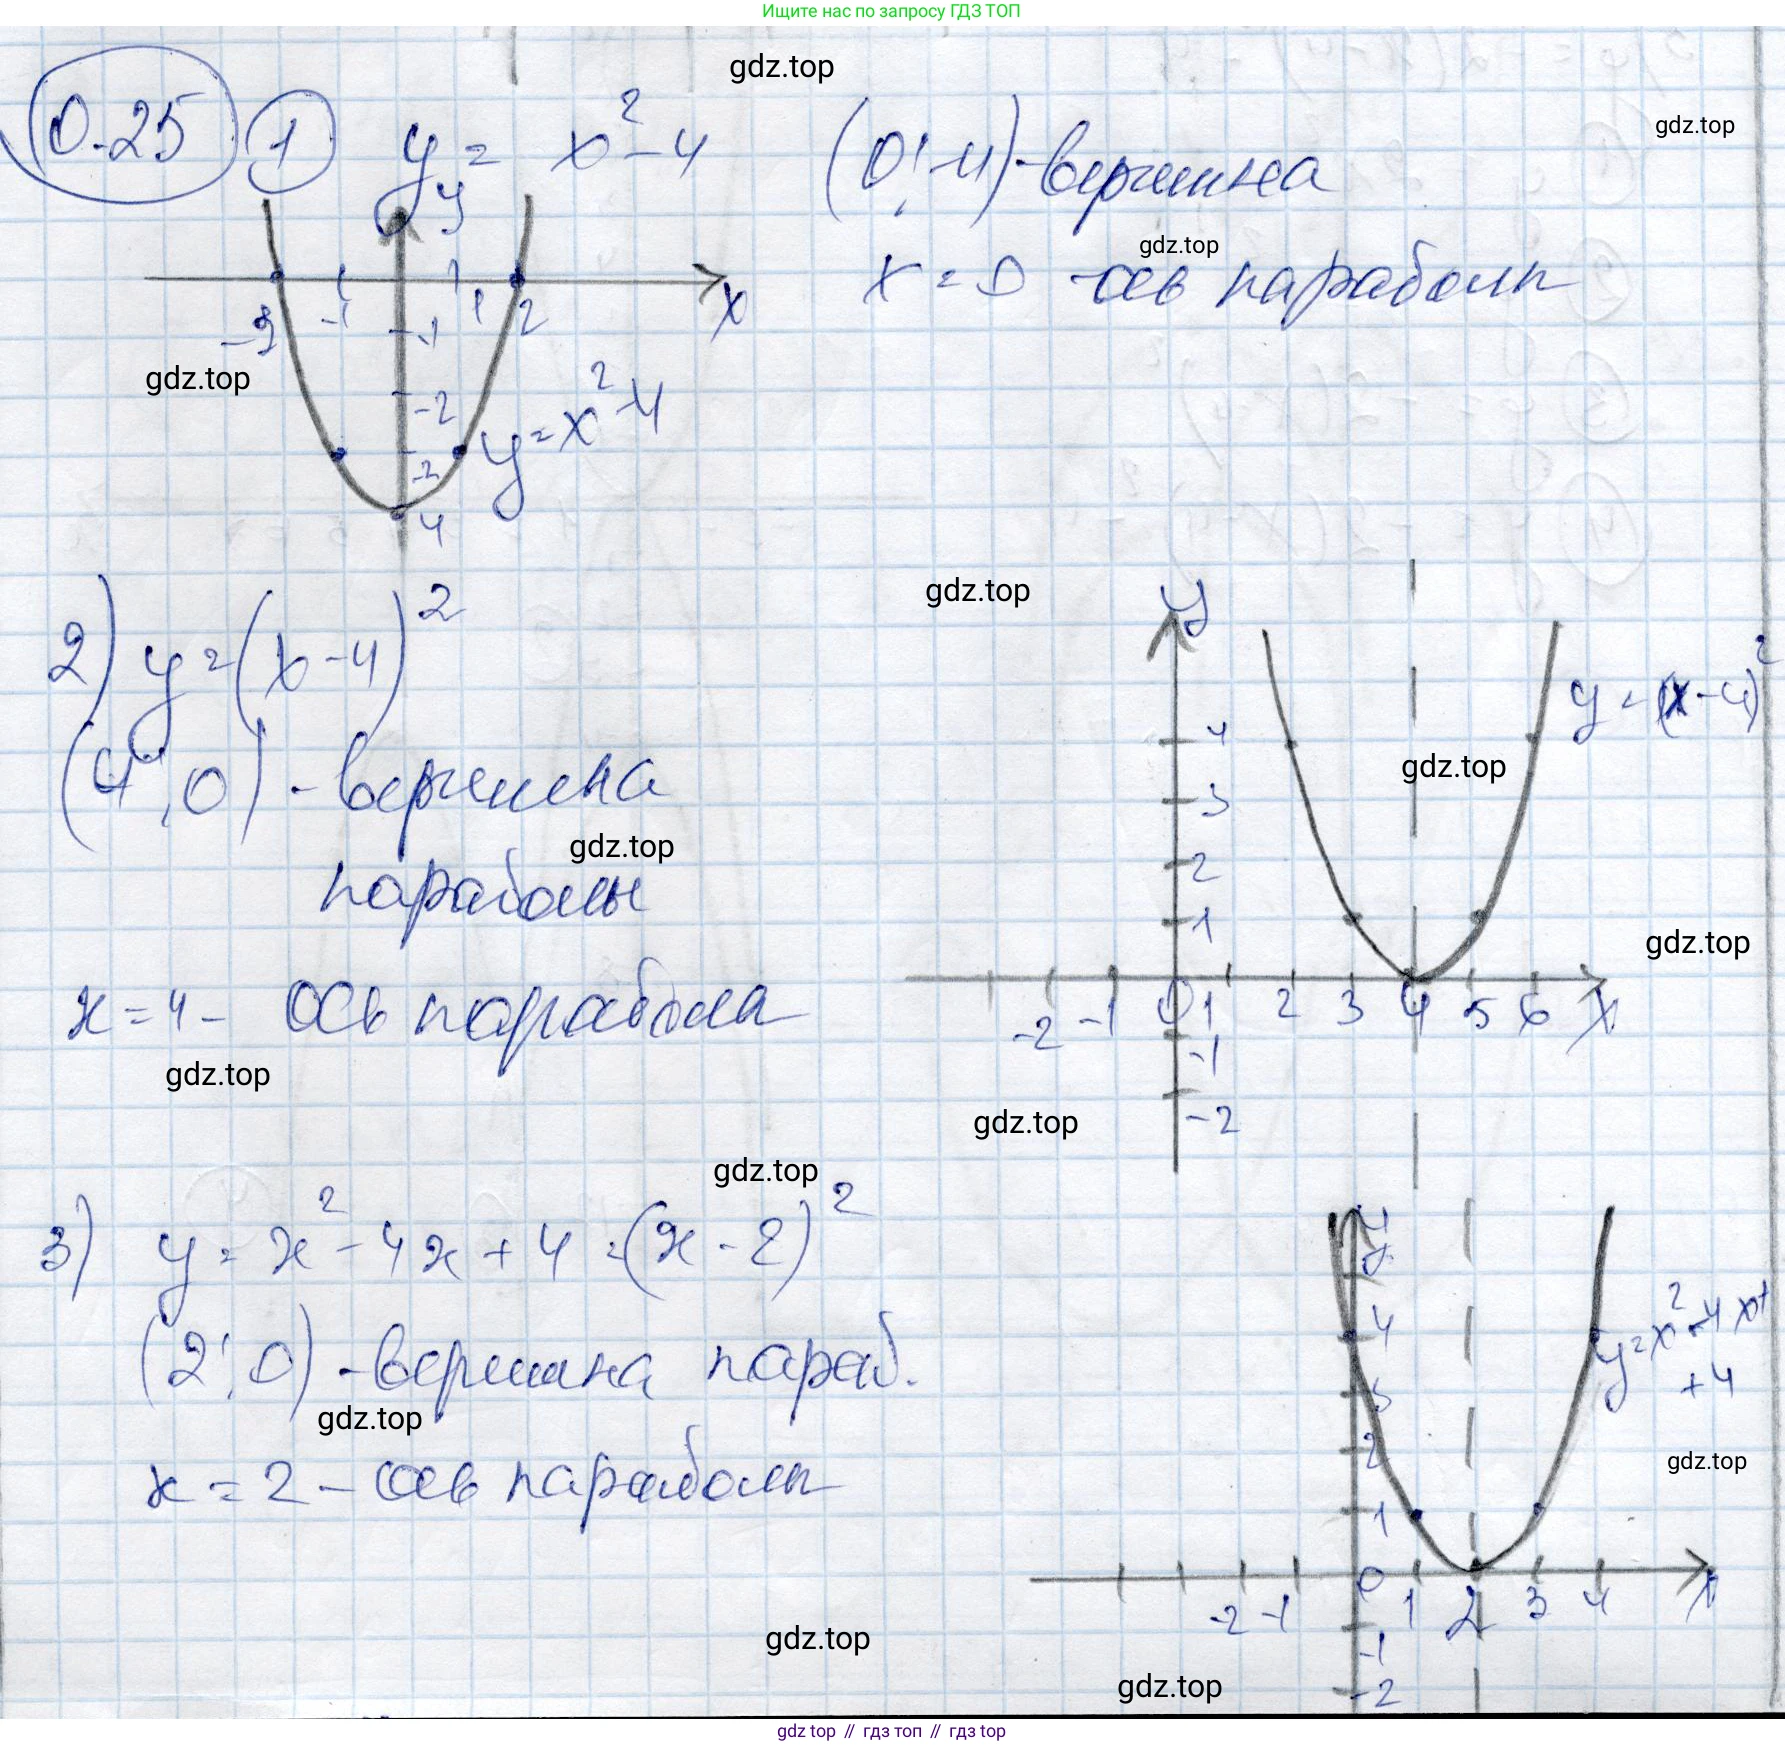 Ищите нас по запросу ГДЗ ТОП
gdz.top
0.25 1 y = x² - 4 (0; -4) - вершина
gdz.top
gdz.top
x = 0 - ось параболы
y
x
-1 1 2
-1
-2
-3
-4
y = x² - 4
gdz.top
2) y = (x - 4)²
(4; 0) - вершина
параболы
gdz.top
x = 4 - ось парабола
gdz.top
gdz.top
y
y = (x - 4)²
4
gdz.top
3
2
1
gdz.top
-2 -1 0 1 2 3 4 5 6 x
-1
-2
gdz.top
gdz.top
3) y = x² - 4x + 4 = (x - 2)²
(2; 0) - вершина параб.
gdz.top
x = 2 - ось параболы
y
4
y = x² - 4x +
+ 4
3
2
gdz.top
1
0
-2 -1 1 2 3 4 x
-1
-2
gdz.top
gdz.top
gdz top // гдз топ // гдз top